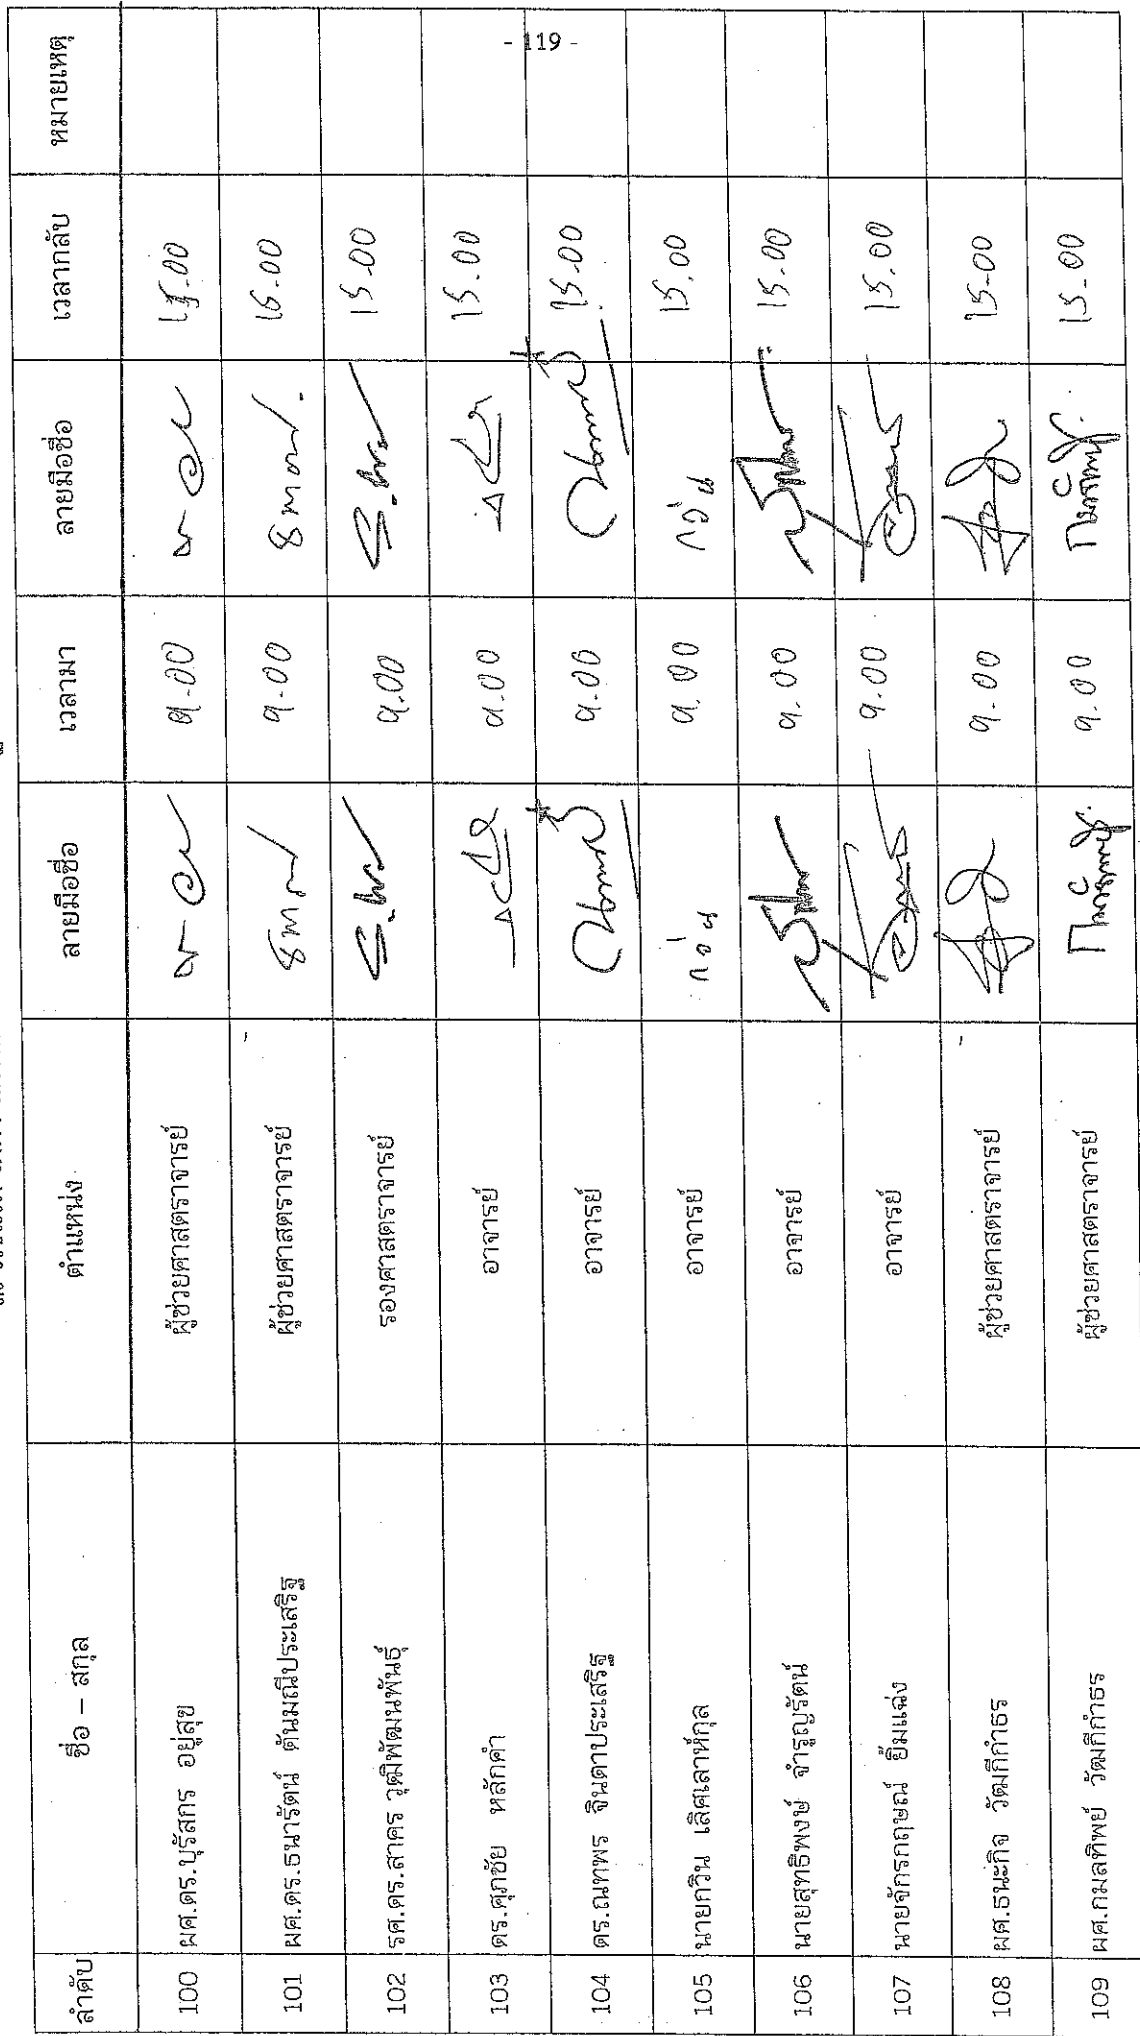 - 119 -
ลำดับ ชื่อ – สกุล ตำแหน่ง ลายมือชื่อ เวลามา ลายมือชื่อ เวลากลับ หมายเหตุ
100 ผศ.ดร.บุรัสกร อยู่สุข ผู้ช่วยศาสตราจารย์ 9.00 15.00
101 ผศ.ดร.ธนารัตน์ ตันมณีประเสริฐ ผู้ช่วยศาสตราจารย์ 9.00 15.00
102 รศ.ดร.สาคร วุฒิพัฒนพันธุ์ รองศาสตราจารย์ 9.00 15.00
103 ดร.ศุภชัย หลักคำ อาจารย์ 9.00 15.00
104 ดร.ณทพร จินดาประเสริฐ อาจารย์ 9.00 15.00
105 นายกวิน เลิศเลาห์กุล อาจารย์ กวิน 9.00 กวิน 15.00
106 นายสุทธิพงษ์ จำรูญรัตน์ อาจารย์ 9.00 15.00
107 นายจักรกฤษณ์ ยิ้มแฉ่ง อาจารย์ 9.00 15.00
108 ผศ.ธนะกิจ วัฒกีกำธร ผู้ช่วยศาสตราจารย์ 9.00 15.00
109 ผศ.กมลทิพย์ วัฒกีกำธร ผู้ช่วยศาสตราจารย์ 9.00 15.00